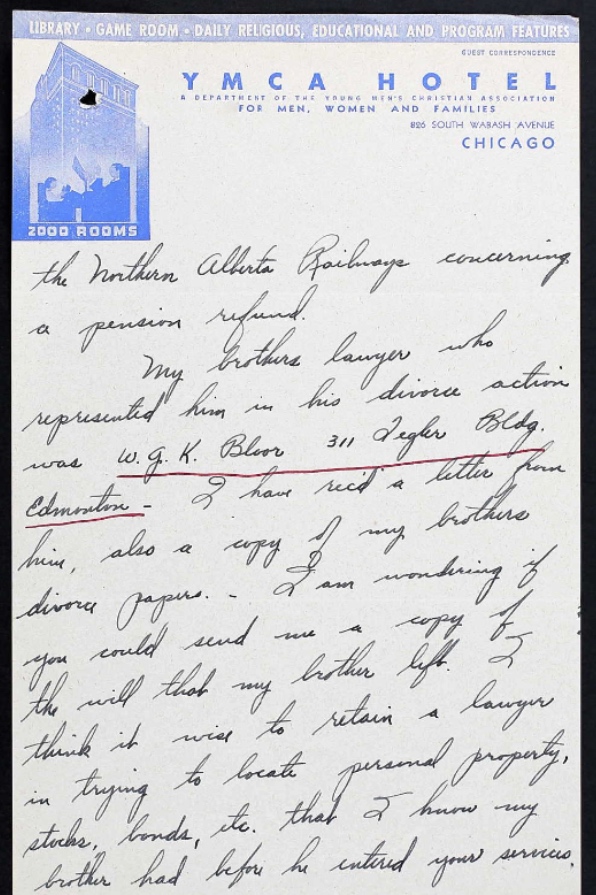 LIBRARY • GAME ROOM • DAILY RELIGIOUS, EDUCATIONAL AND PROGRAM FEATURES
GUEST CORRESPONDENCE
YMCA HOTEL
A DEPARTMENT OF THE YOUNG MEN'S CHRISTIAN ASSOCIATION
FOR MEN, WOMEN AND FAMILIES
826 SOUTH WABASH AVENUE
CHICAGO
2000 ROOMS
the Northern Alberta Railways concerning
a pension refund.
My brothers lawyer who
represented him in his divorce action
was W. G. K. Bloor 311 Tegler Bldg.
Edmonton - I have rec'd a letter from
him, also a copy of my brothers
divorce papers. - I am wondering if
you could send me a copy of
the will that my brother left. I
think it wise to retain a lawyer
in trying to locate personal property,
stocks, bonds, etc. that I know my
brother had before he entered your services.